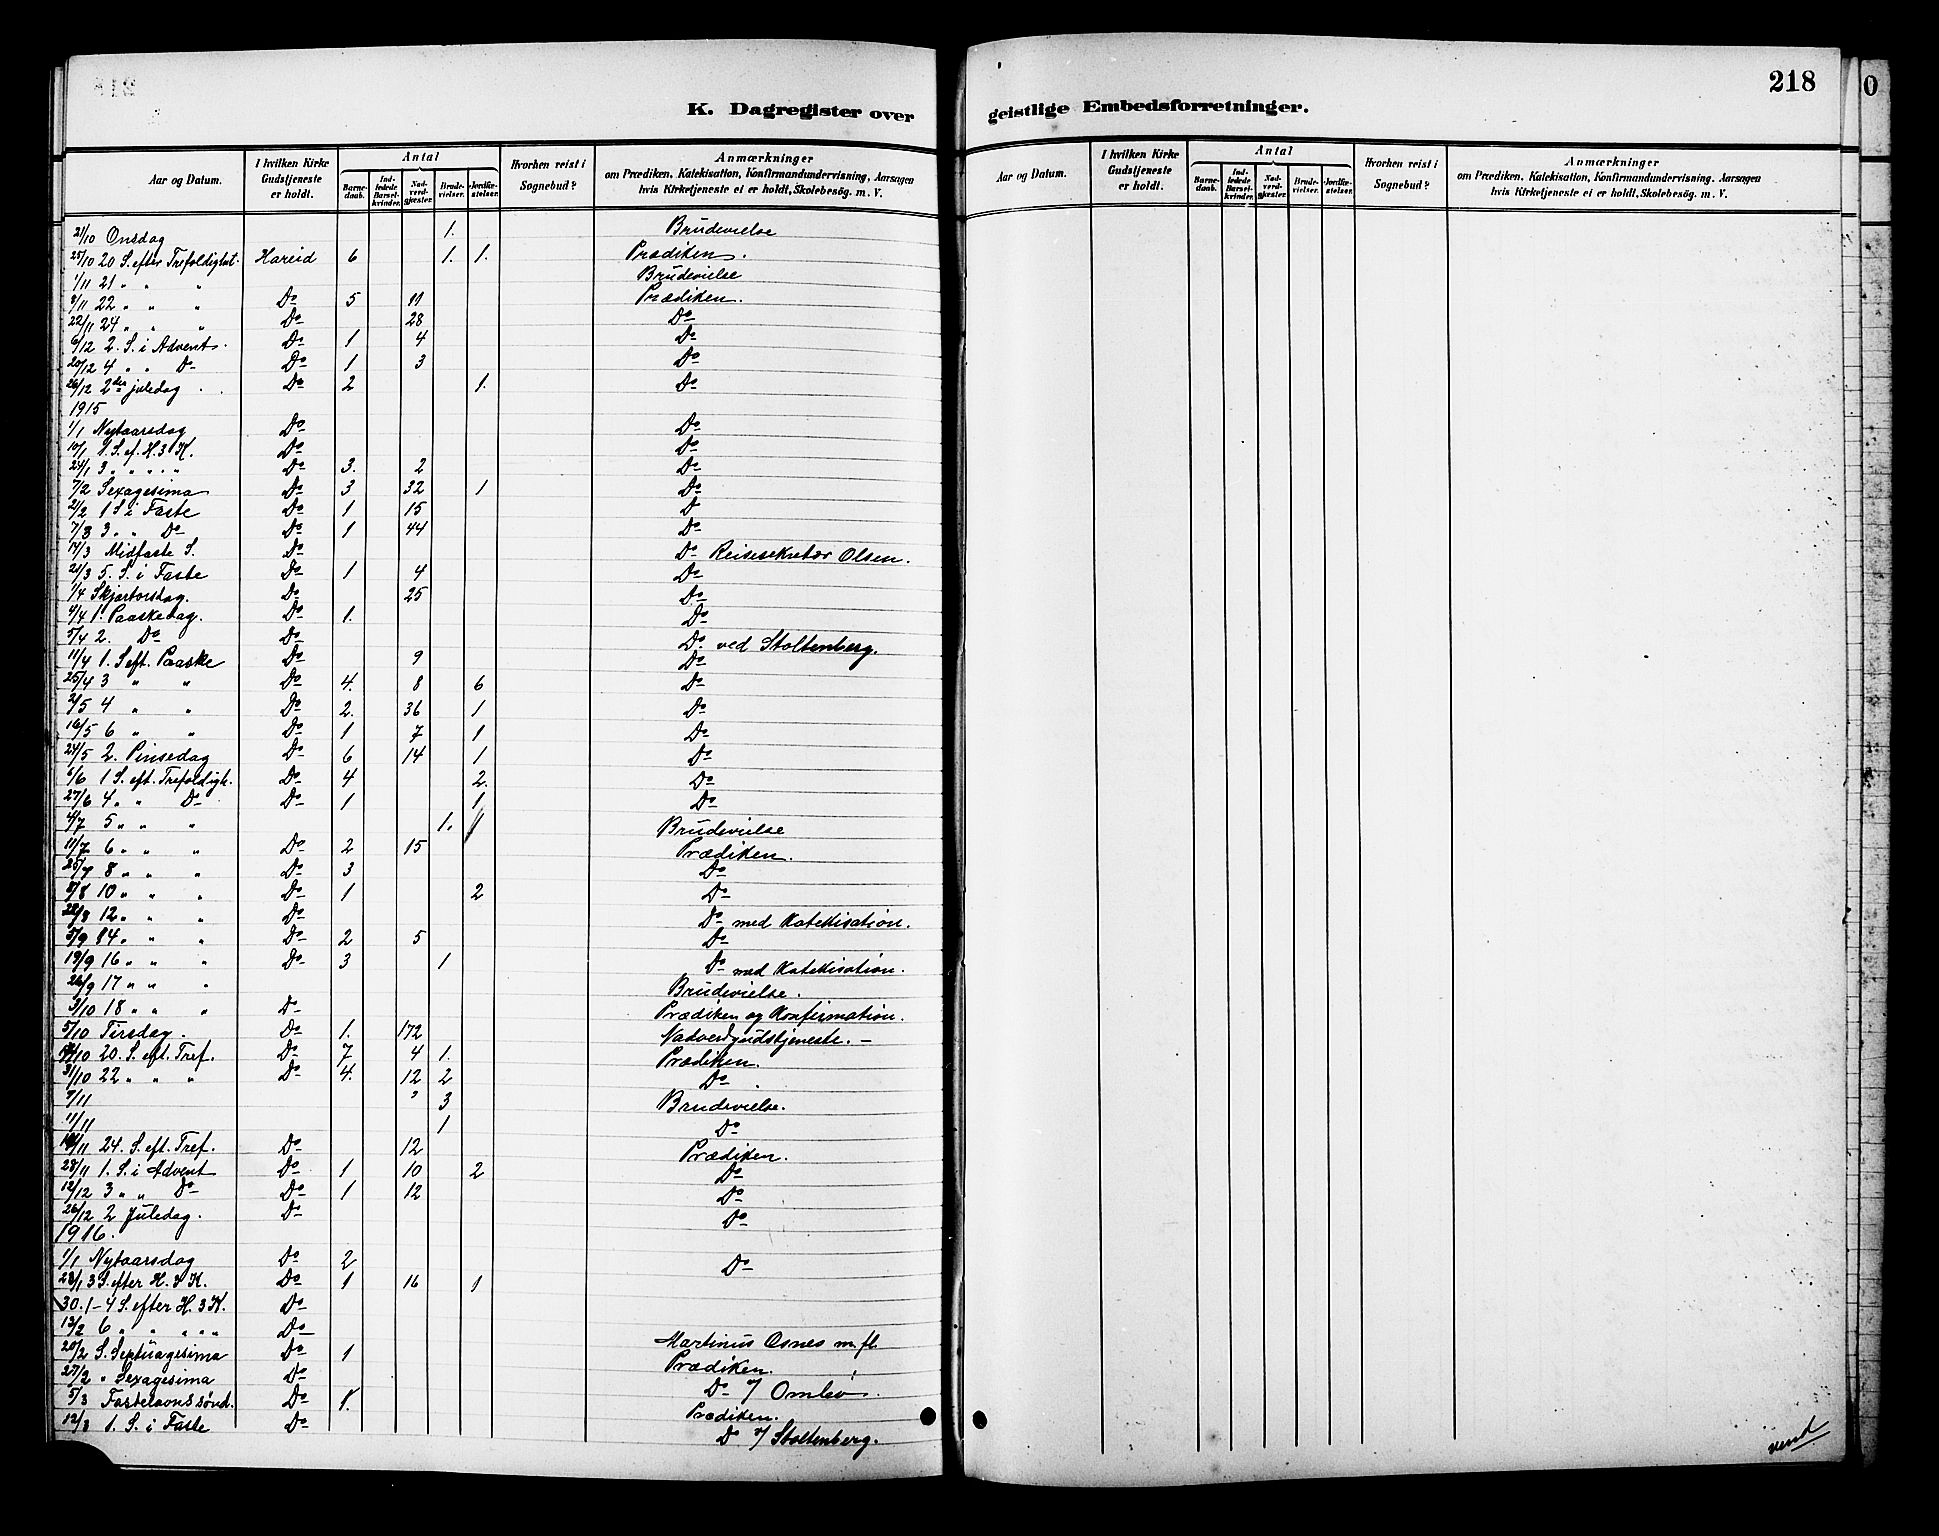 K. Dagregister over
Aar og Datum. I hvilken Kirke Gudstjeneste er holdt. Antal Barnedaab. Indledede Barselkvinder. Nadverdgjester. Brudevielser. Jordfæstelser. Hvorhen reist i Sognebud? Anmærkninger om Prædiken, Katekisation, Konfirmandundervisning, Aarsagen hvis Kirketjeneste ei er holdt, Skolebesög. m. V.
21/10 Onsdag 1. Brudevielse
25/10 20 S. efter Trefoldighet. Hareid 6 1. 1. Prædiken.
1/11 21 " " " Brudevielse
8/11 22 " " " Do 5 11 Prædiken.
22/11 24 " " " Do 28 Do
6/12 2. S. i Advent. Do 1 4 Do
20/12 4 " " Do Do 1 3 Do
26/12 2den juledag Do 2 1. Do
1915
1/1 Nytaarsdag Do Do
10/1 1 S. ef. H. 3 K. Do Do
24/1 3 " " " " Do 3. 2 Do
7/2 Sexagesima Do 3 32 1 Do
21/2 1 S i Faste Do 1 15 Do
7/3 3 " " Do Do 1 44 Do
14/3 Midfaste S. Do Do Reisesekretær Olsen.
21/3 5. S. i Faste Do 1 4 Do
1/4 Skjærtorsdag. Do 25 Do
4/4 1. Paaskedag. Do 1. Do
5/4 2. Do Do Do ved Stoltenberg.
11/4 1. S eft. Paaske Do 9 Do
25/4 3 " " Do 4. 8 6 Do
2/5 4 " " Do 2. 36 1 Do
16/5 6 " " Do 1 7 1 Do
24/5 2. Pinsedag Do 6 14 1 Do
6/6 1 S. eft. Trefoldigh. Do 4 2. Do
27/6 4 " " Do Do 1 1 Do
4/7 5 " " " 1. Brudevielse
11/7 6 " " " Do 2 15 Prædiken.
25/7 8 " " " Do 3 Do
8/8 10 " " " Do 1 2 Do
22/8 12 " " " Do Do med Katekisation.
5/9 14 " " " Do 2 5 Do
19/9 16 " " " Do 3 1 Do med Katekisation.
26/9 17 " " " Brudevielse.
3/10 18 " " " Do Prædiken og Konfirmation.
5/10 Tirsdag. Do 1. 172 Nadverdgudstjeneste. –
/10 20. S. eft. Tref. Do 7 4 1. Prædiken.
31/10 22 " " " Do 4. 12 2 Do
7/11 " 3 Brudevielse.
11/11 1 Do
/11 24. S. eft. Tref. Do 12 Prædiken.
28/11 1. S. i Advent Do 1 10 2 Do
12/12 3 " " Do Do 1 12 Do
26/12 2 Juledag. Do Do
1916.
1/1 Nytaarsdag Do 2 Do
23/1 3 S. efter H. 3 K. Do 1 16 1
30. 1 – 4 S. efter H. 3 K. Do
13/2 6 " " " " " Do Martinus Osnes m. fl.
20/2 S. Septuagesima Do 1 Prædiken.
27/2 " Sexagesima Do Do v/
5/3 Fastelavnssønd. Do 1. Prædiken.
12/3 1. S. i Faste Do Do v/ Stoltenberg.
218
geistlige Embedsforretninger.
Aar og Datum. I hvilken Kirke Gudstjeneste er holdt. Antal Barnedaab. Indledede Barselkvinder. Nadverdgjester. Brudevielser. Jordfæstelser. Hvorhen reist i Sognebud? Anmærkninger om Prædiken, Katekisation, Konfirmandundervisning, Aarsagen hvis Kirketjeneste ei er holdt, Skolebesög. m. V.
vend
0